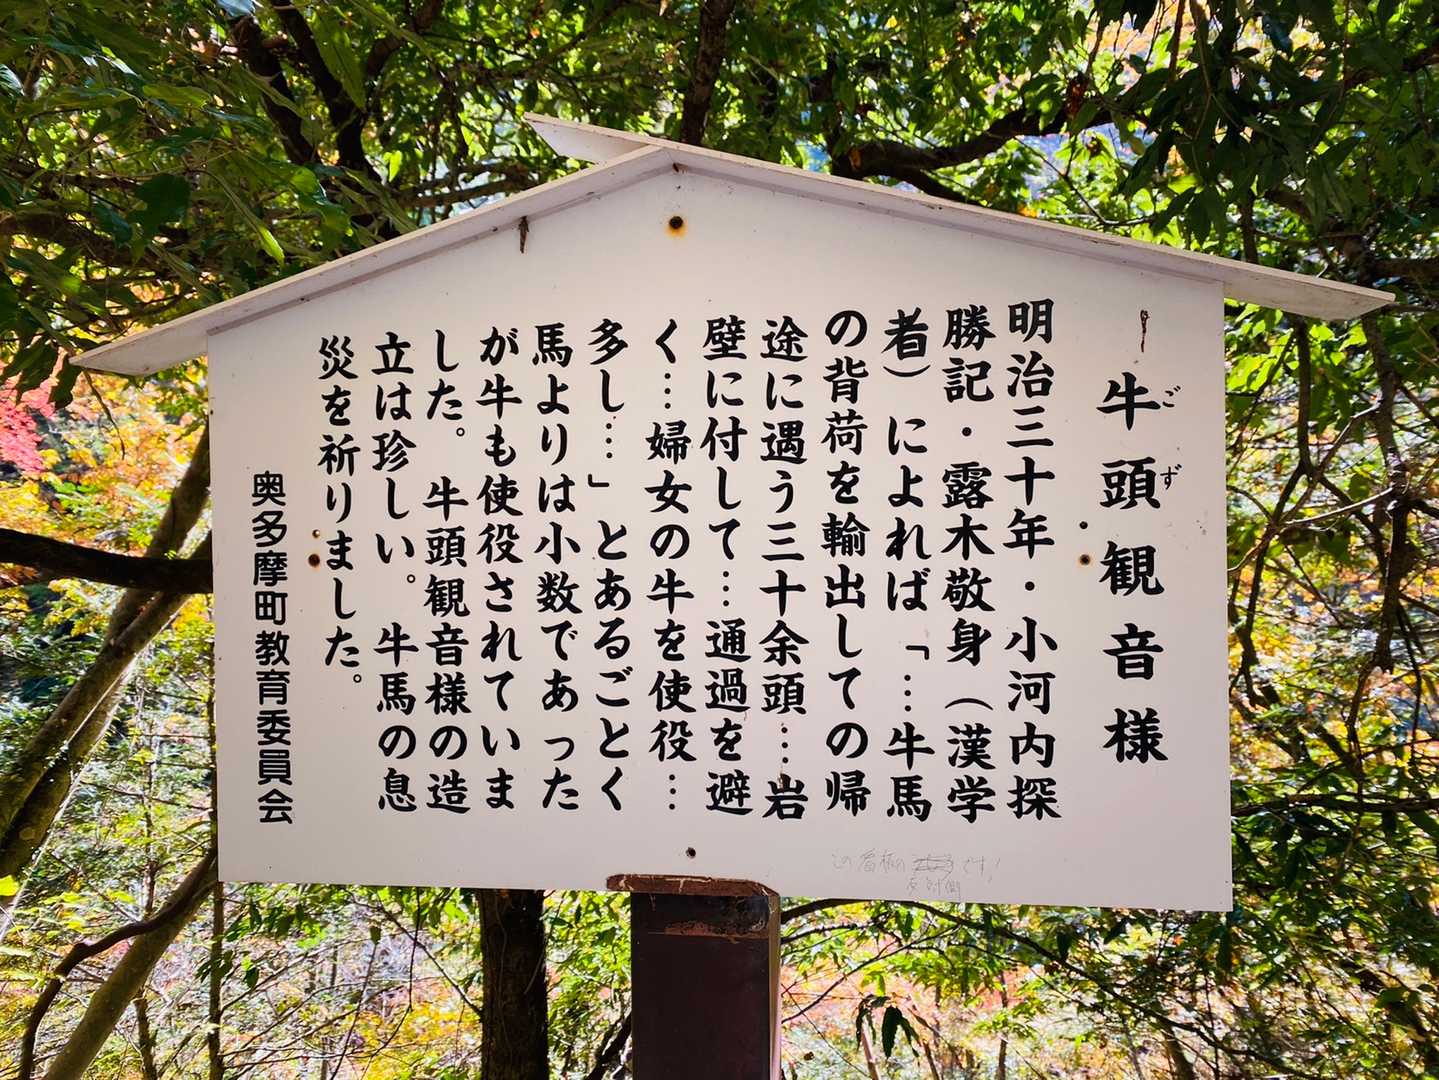 牛頭観音様
ごず
明治三十年・小河内探
勝記・露木敬身（漢学
者）によれば「…牛馬
の背荷を輸出しての帰
途に遇う三十余頭…岩
壁に付して…通過を避
く…婦女の牛を使役…
多し…」とあるごとく
馬よりは小数であった
が牛も使役されていま
した。牛頭観音様の造
立は珍しい。牛馬の息
災を祈りました。
奥多摩町教育委員会
この看板の
です！
反対側